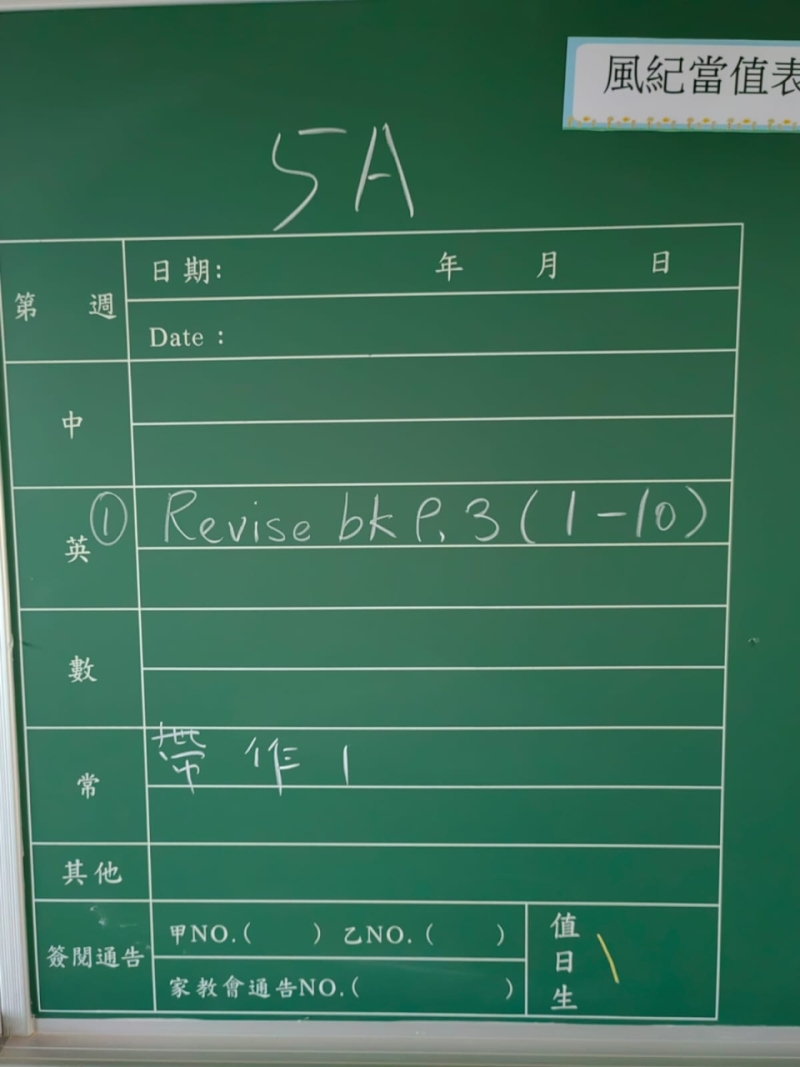 風紀當值表
5A
第 週
日期: 年 月 日
Date :
中
英 ① Revise bk P. 3 (1-10)
數
常 帶 作 1
其他
簽閱通告
甲NO.( ) 乙NO.( )
家教會通告NO.( )
值日生 \